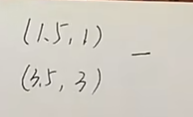 (1.5, 1) —
(3.5, 3)